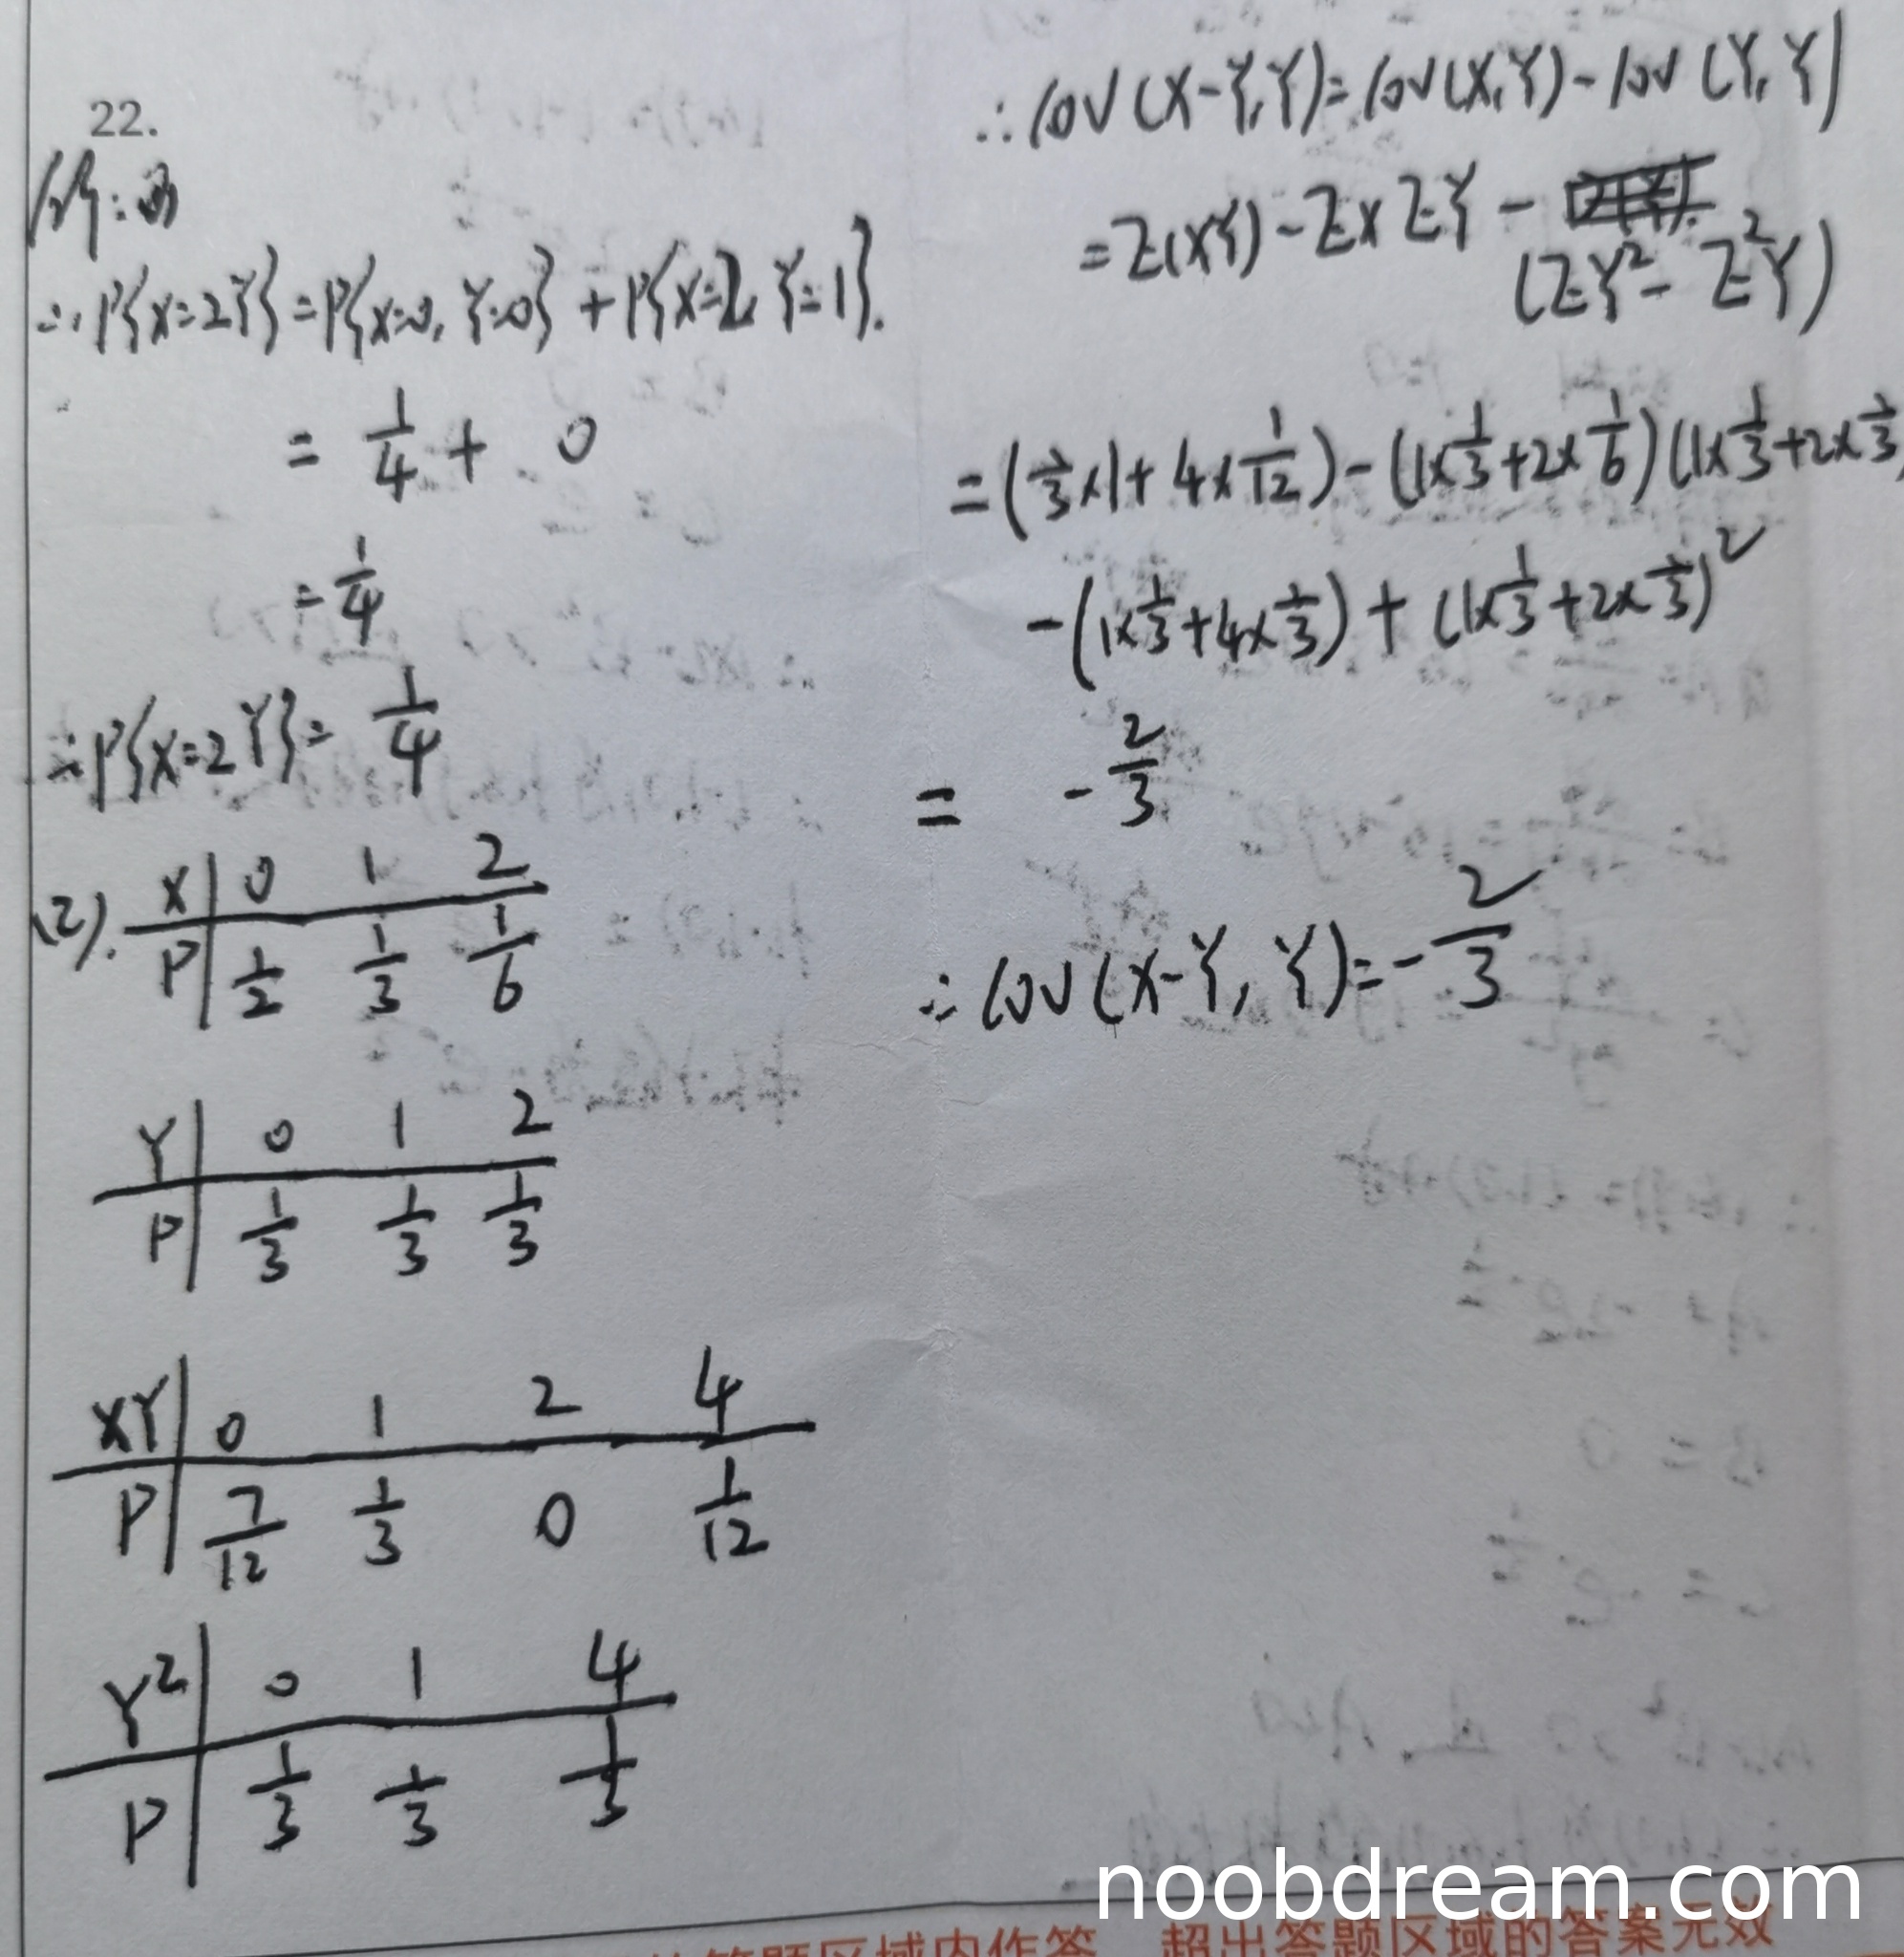 22.
解:(1)
∴P{X=2Y}=P{X=0,Y=0}+P{X=2,Y=1}.
= 1/4 + 0
= 1/4
∴P{X=2Y}= 1/4
(2). X | 0 1 2
P | 1/2 1/3 1/6
Y | 0 1 2
P | 1/3 1/3 1/3
XY | 0 1 2 4
P | 7/12 1/3 0 1/12
Y² | 0 1 4
P | 1/3 1/3 1/3
∴ COV(X-Y,Y)=COV(X,Y)-COV(Y,Y)
=E(XY)-EXEY-
(EY²-E²Y)
=(1/3×1+4×1/12)-(1×1/3+2×1/6)(1×1/3+2×1/3)
-(1×1/3+4×1/3)+(1×1/3+2×1/3)²
= -2/3
∴COV(X-Y,Y)=-2/3
超出答题区域的答案无效
noobdream.com